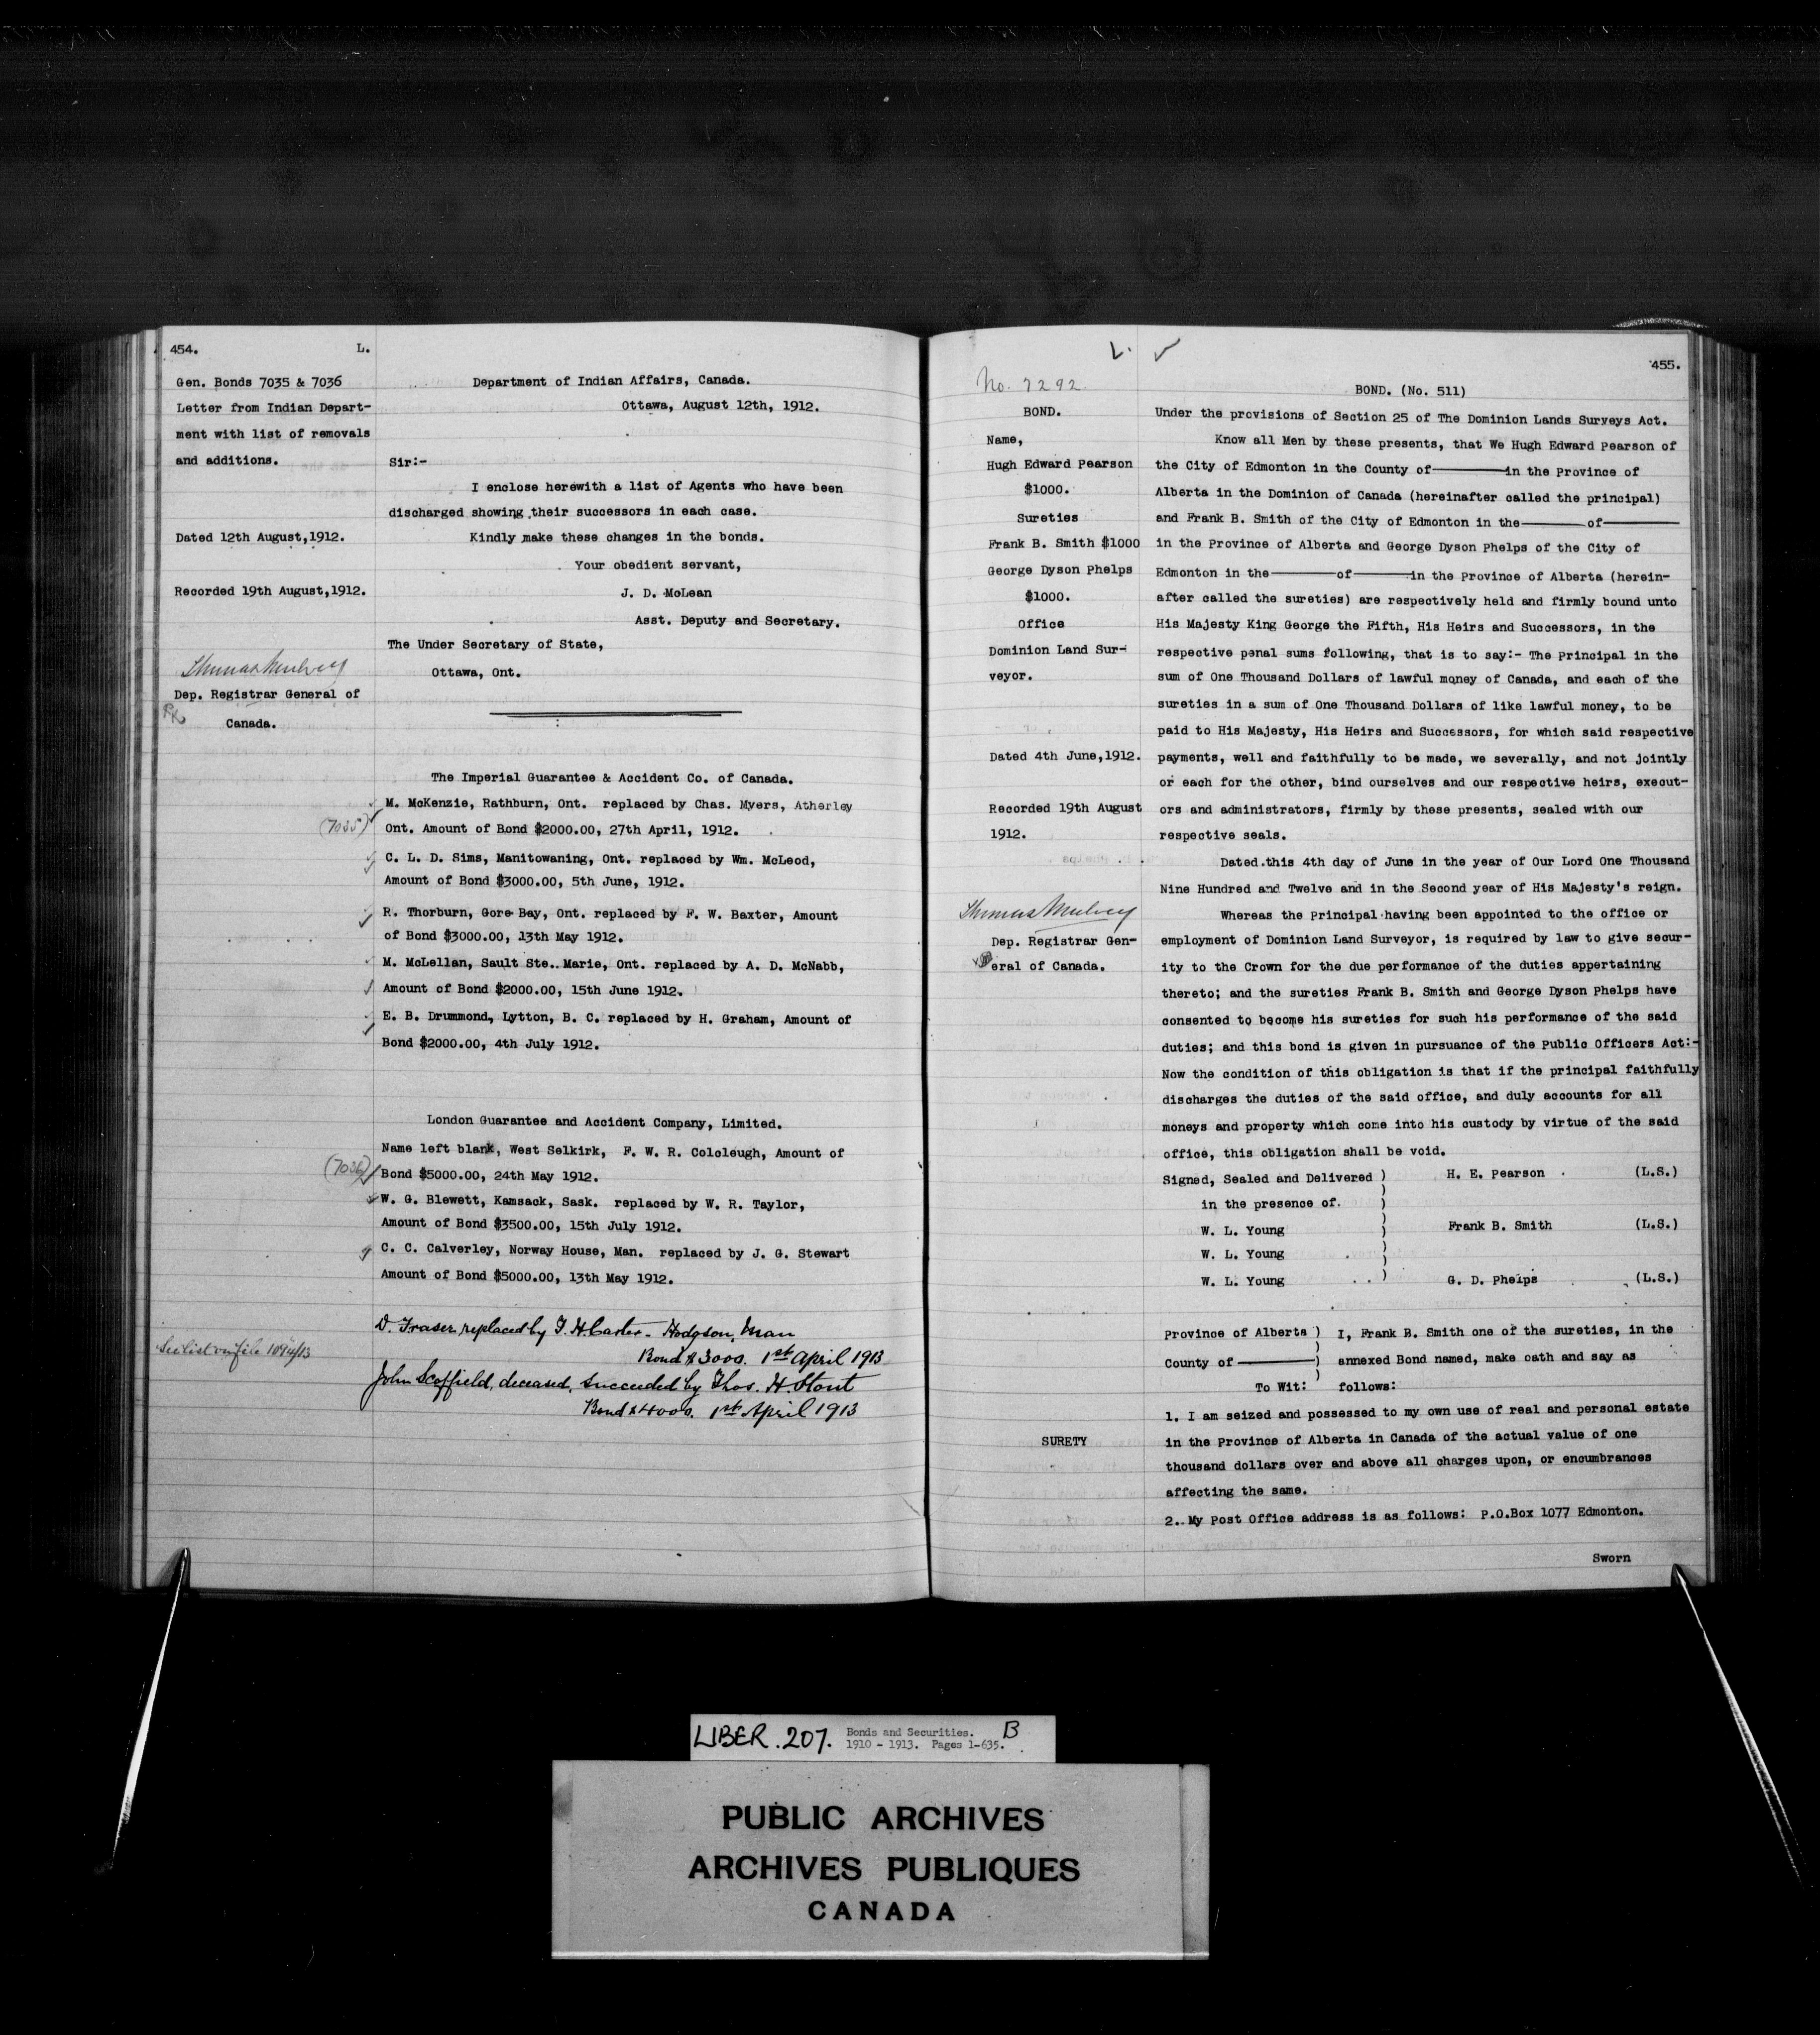 454. L.
Gen. Bonds 7035 & 7036
Letter from Indian Depart-
ment with list of removals
and additions.
Dated 12th August,1912.
Recorded 19th August,1912.
Thomas Mulvey
Dep. Registrar General of
Canada.
Department of Indian Affairs, Canada.
Ottawa, August 12th, 1912.
Sir:-
I enclose herewith a list of Agents who have been
discharged showing their successors in each case.
Kindly make these changes in the bonds.
Your obedient servant,
J. D. McLean
Asst. Deputy and Secretary.
The Under Secretary of State,
Ottawa, Ont.
The Imperial Guarantee & Accident Co. of Canada.
M. McKenzie, Rathburn, Ont. replaced by Chas. Myers, Atherley
(7035) Ont. Amount of Bond $2000.00, 27th April, 1912.
C. L. D. Sims, Manitowaning, Ont. replaced by Wm. McLeod,
Amount of Bond $3000.00, 5th June, 1912.
R. Thorburn, Gore Bay, Ont. replaced by F. W. Baxter, Amount
of Bond $3000.00, 13th May 1912.
M. McLellan, Sault Ste.. Marie, Ont. replaced by A. D. McNabb,
Amount of Bond $2000.00, 15th June 1912.
E. B. Drummond, Lytton, B. C. replaced by H. Graham, Amount of
Bond $2000.00, 4th July 1912.
London Guarantee and Accident Company, Limited.
Name left blank, West Selkirk, F. W. R. Colcleugh, Amount of
(7036) Bond $5000.00, 24th May 1912.
W. G. Blewett, Kamsack, Sask. replaced by W. R. Taylor,
Amount of Bond $3500.00, 15th July 1912.
C. C. Calverley, Norway House, Man. replaced by J. G. Stewart
Amount of Bond $5000.00, 13th May 1912.
D. Fraser, replaced by T. H. Carter - Hodgson, Man
Bond $3000. 1st April 1913
See list on file
John Scoffield, deceased, succeeded by Thos. H. Stout
Bond $4000. 1st April 1913
455.
No. 7292
BOND.
Name,
Hugh Edward Pearson
$1000.
Sureties
Frank B. Smith $1000
George Dyson Phelps
$1000.
Office
Dominion Land Sur-
veyor.
Dated 4th June,1912.
Recorded 19th August
1912.
Thomas Mulvey
Dep. Registrar Gen-
eral of Canada.
SURETY
BOND. (No. 511)
Under the provisions of Section 25 of The Dominion Lands Surveys Act.
Know all Men by these presents, that We Hugh Edward Pearson of
the City of Edmonton in the County of————in the Province of
Alberta in the Dominion of Canada (hereinafter called the principal)
and Frank B. Smith of the City of Edmonton in the————of————
in the Province of Alberta and George Dyson Phelps of the City of
Edmonton in the————of————in the Province of Alberta (herein-
after called the sureties) are respectively held and firmly bound unto
His Majesty King George the Fifth, His Heirs and Successors, in the
respective penal sums following, that is to say:- The Principal in the
sum of One Thousand Dollars of lawful money of Canada, and each of the
sureties in a sum of One Thousand Dollars of like lawful money, to be
paid to His Majesty, His Heirs and Successors, for which said respective
payments, well and faithfully to be made, we severally, and not jointly
or each for the other, bind ourselves and our respective heirs, execut-
ors and administrators, firmly by these presents, sealed with our
respective seals.
Dated this 4th day of June in the year of Our Lord One Thousand
Nine Hundred and Twelve and in the Second year of His Majesty's reign.
Whereas the Principal having been appointed to the office or
employment of Dominion Land Surveyor, is required by law to give secur-
ity to the Crown for the due performance of the duties appertaining
thereto; and the sureties Frank B. Smith and George Dyson Phelps have
consented to become his sureties for such his performance of the said
duties; and this bond is given in pursuance of the Public Officers Act:-
Now the condition of this obligation is that if the principal faithfully
discharges the duties of the said office, and duly accounts for all
moneys and property which come into his custody by virtue of the said
office, this obligation shall be void.
Signed, Sealed and Delivered ) H. E. Pearson (L.S.)
in the presence of. )
W. L. Young ) Frank B. Smith (L.S.)
W. L. Young )
W. L. Young ) G. D. Phelps (L.S.)
Province of Alberta ) I, Frank B. Smith one of the sureties, in the
County of ————) annexed Bond named, make oath and say as
To Wit: ) follows:
1. I am seized and possessed to my own use of real and personal estate
in the Province of Alberta in Canada of the actual value of one
thousand dollars over and above all charges upon, or encumbrances
affecting the same.
2.. My Post Office address is as follows: P.O.Box 1077 Edmonton.
Sworn
LIBER. 207. Bonds and Securities. B
1910 - 1913. Pages 1-635.
PUBLIC ARCHIVES
ARCHIVES PUBLIQUES
CANADA